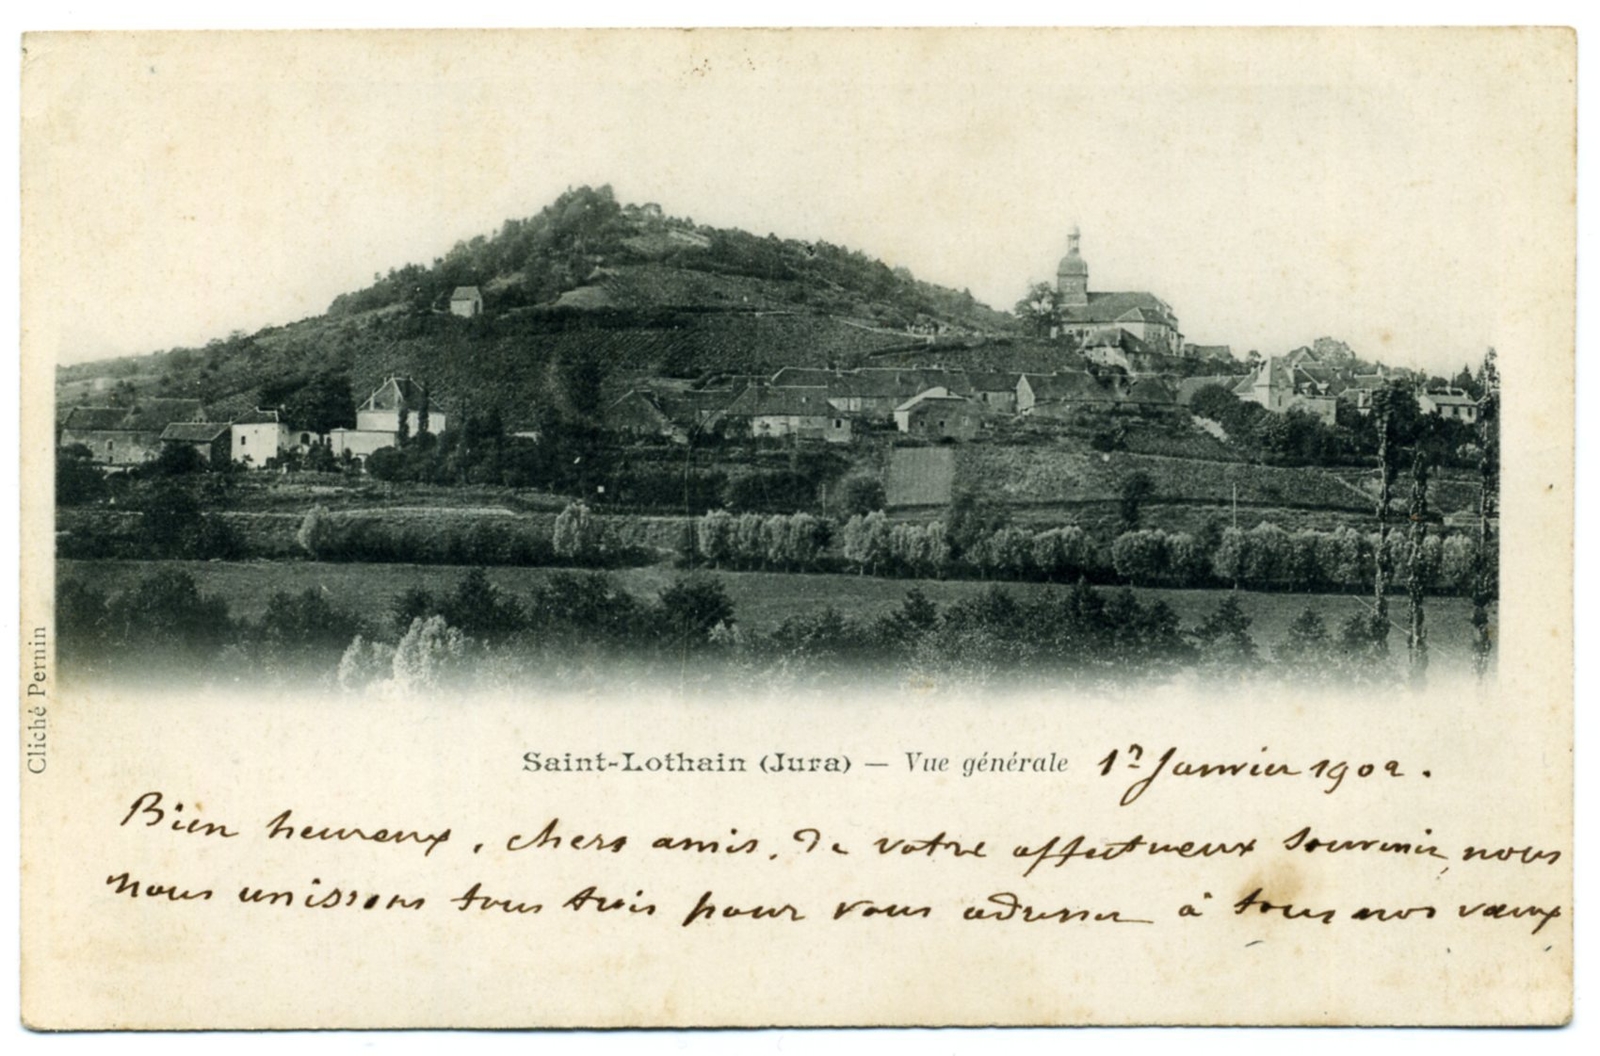 Cliché Pernin
Saint-Lothain (Jura) — Vue générale 1er Janvier 1902.
Bien heureux, chers amis, de votre affectueux souvenir, nous
nous unissons tous trois pour vous adresser à tous nos vœux